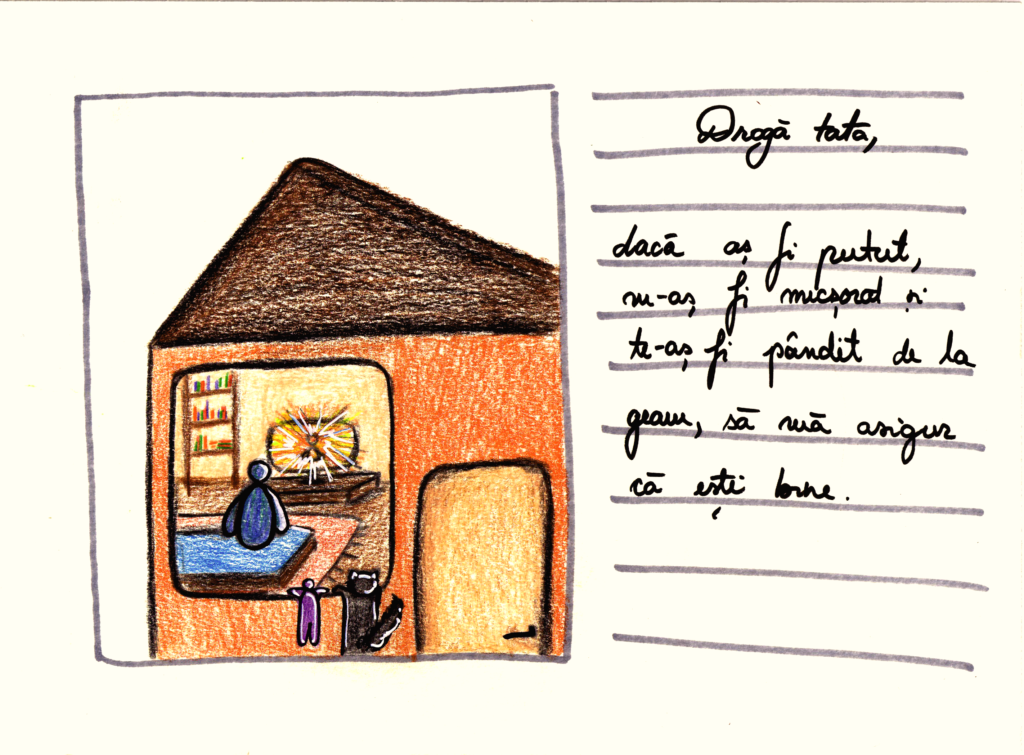 Dragă tată,
dacă aș fi putut,
m-aș fi micșorat și
te-aș fi pândit de la
geam, să mă asigur
că ești bine.